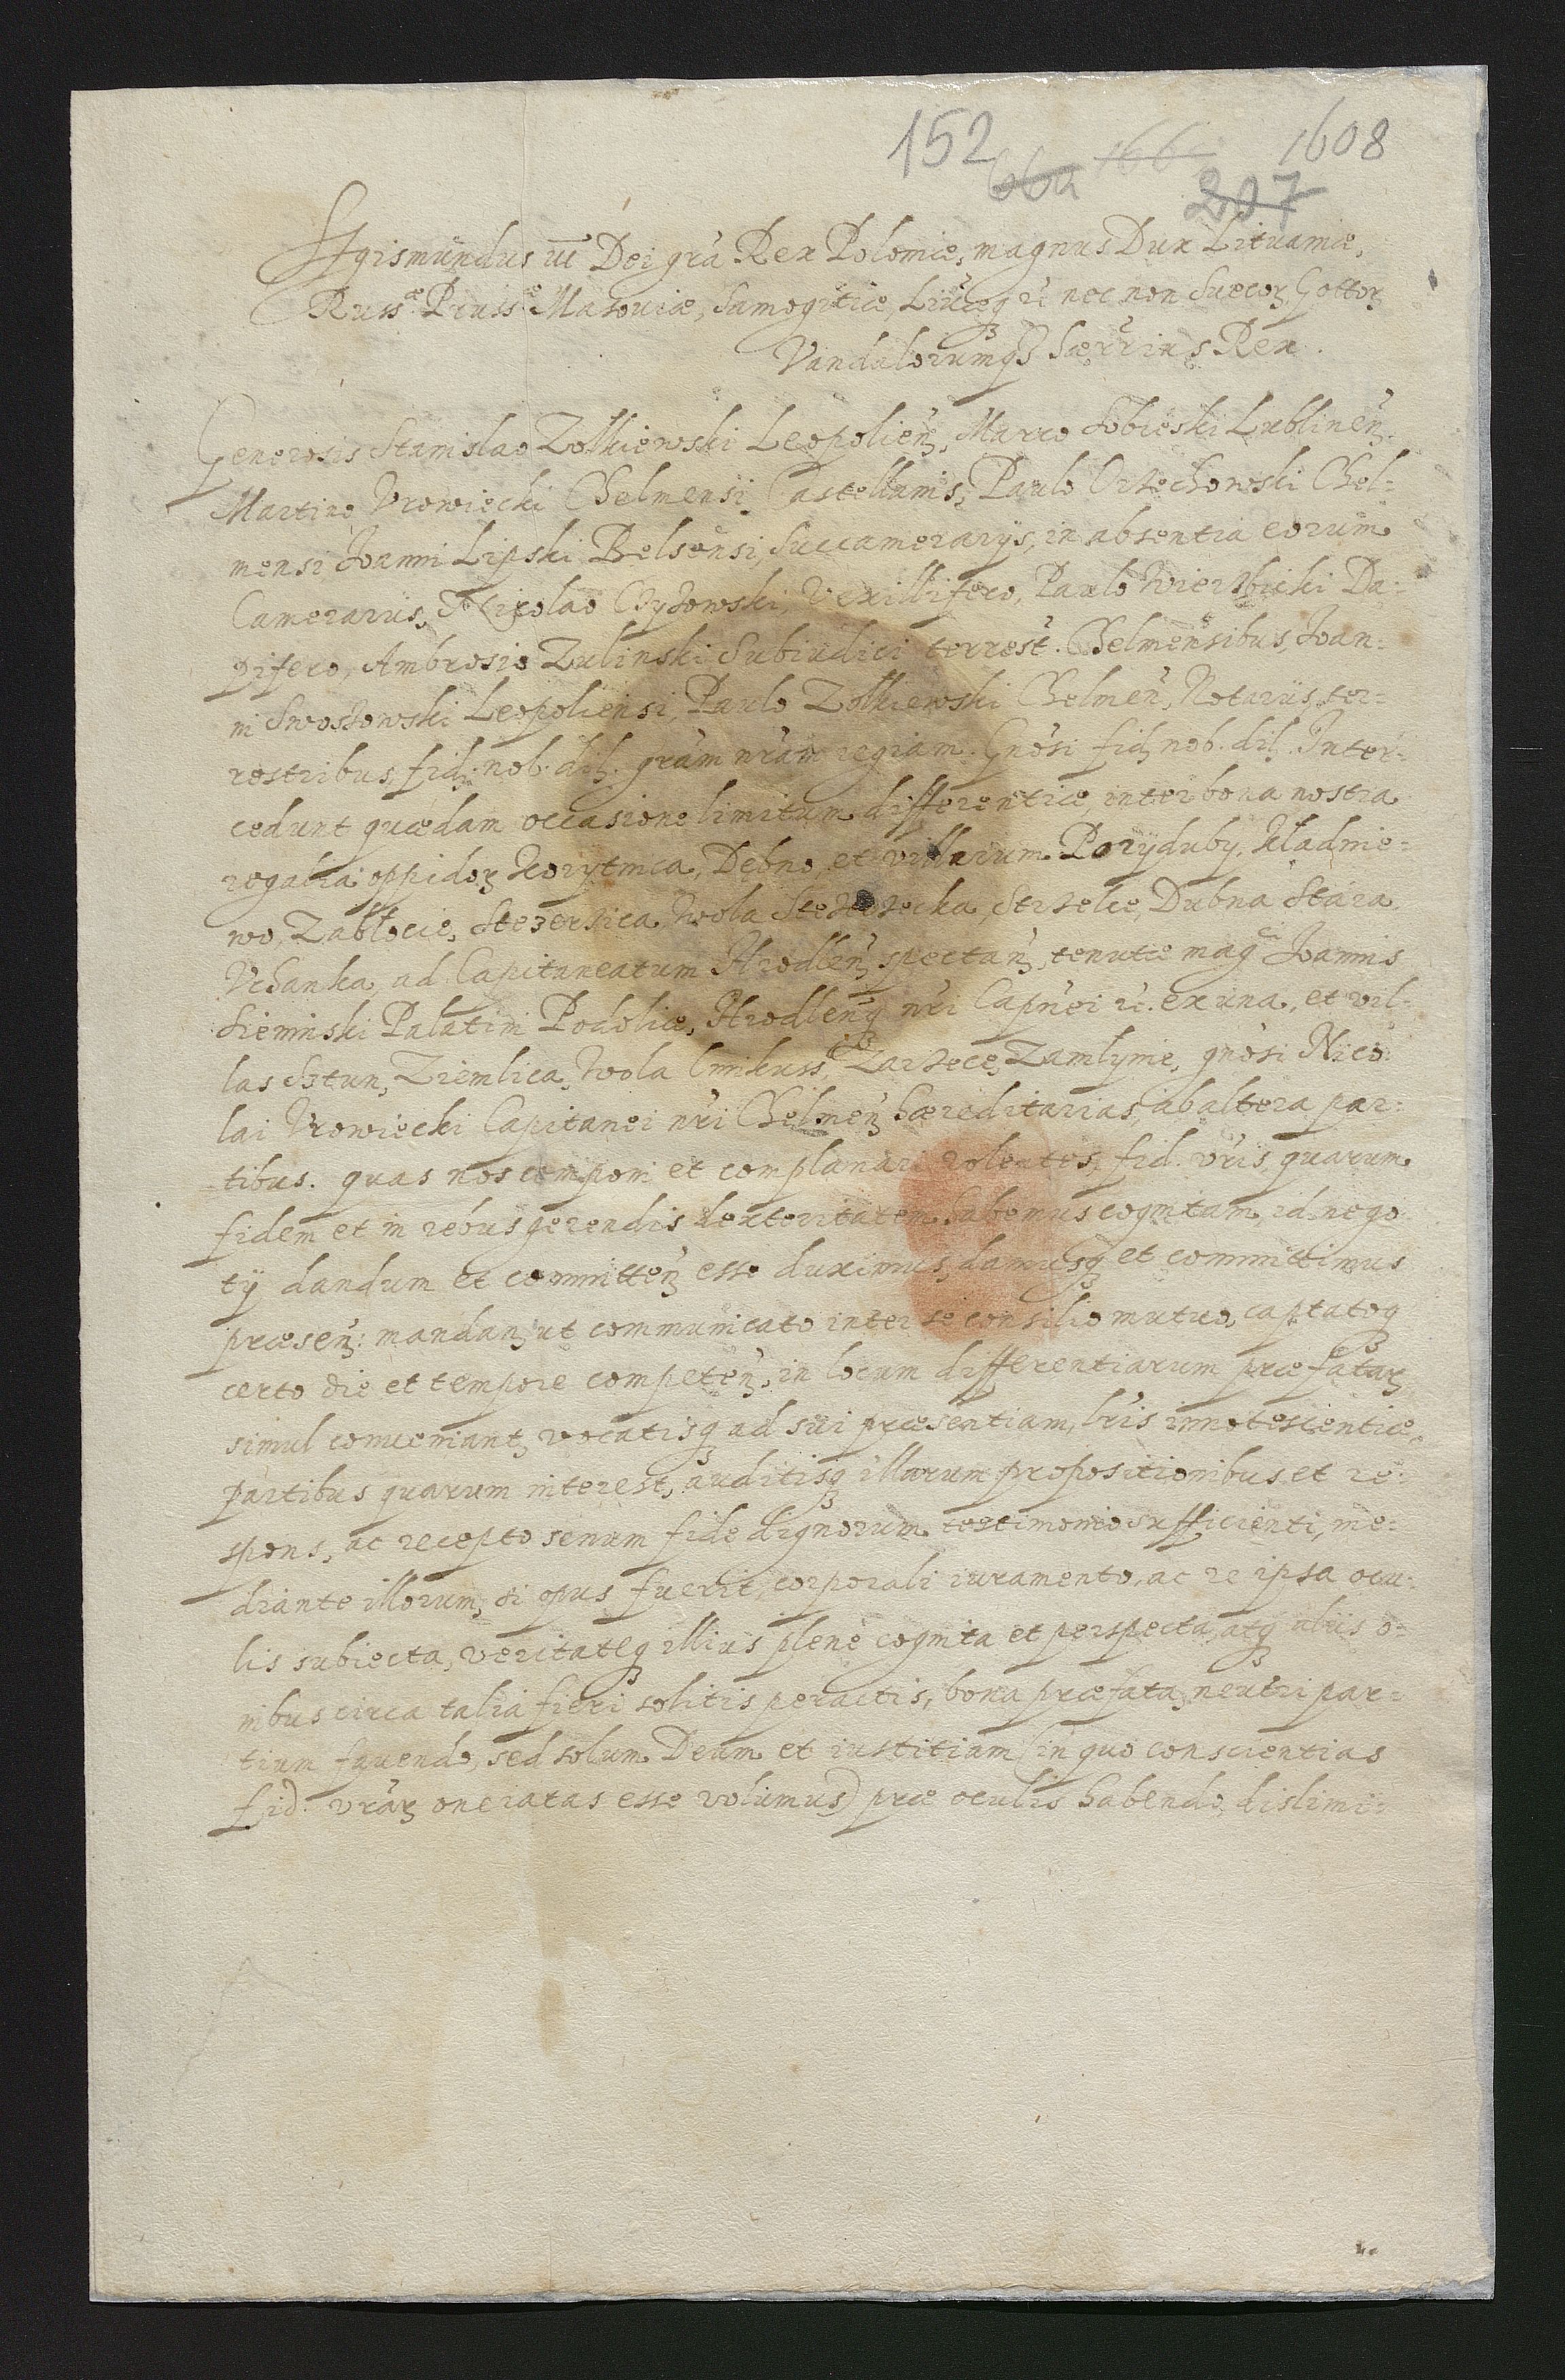 152 66a 1608
207
Sigismundus III Dei gr̃a Rex Poloniæ, magnus Dux Lituaniæ,
Russ.æ Pruss.æ Masoviæ, Samogitiæ, Livõeqꝫ ꝛc nec non Suecoꝝ, Gottoꝝ
Vandalorumqꝫ hær̃rius Rex.
Generosis Stanislao Zolkiewski Leopolieñ, Marco Sobieski Lublineñ,
Martino Urowiecki Chelmensi Castellanis, Paulo Orzechowski Chel=
mensi, Joanni Lipski Belsensi, Succamerarijs, in absentia eorum
Camerariis, Nicolao Czyżowski, Vexillifero, Paulo Wierzbicki Da=
pifero, Ambrosio Zulinski Subiudici terrest̃. Chelmensibus, Joan=
ni Swoszowski Leopoliensi, Paulo Zolkiewski Chelmeñ, Notariis, ter=
restribus, fidꝫ. nob. dilꝫ. gr̃am nr̃am regiam. Gnõsi fidꝫ nob. dilꝫ. Inter=
cedunt quædam occasione limitum differentiæ, inter bona nostra
regalia oppidoꝝ Korytnica, Dębno, et villarum Poryduby, Kladnie=
wo, Zabłocie, Stezerzica, Wola Stezerzecka, Strzelce, Dubna Stara,
Uchanka, ad Capitaneatum Hrodleñ spectañ, tenutæ mag.ci Joannis
Sieninski Palatini Podoliæ, Hrodleñqꝫ nr̃i Capñei ꝛc. ex una, et vil=
las Sztun, Ziemlica, Wola Zarzece, Zamlynie, gnõsi Nico=
lai Urowiecki Capitanei nr̃i Chelmeñ hæreditarias, ab altera par=
tibus. quas nos componi et complanari volentes, fid. vr̃is, quarum
fidem et in rebus gerendis dexteritatem habemus cognitam, id nego=
tij dandum et committeñ esse duximus, damusqꝫ et committimus
præseñ: mandañ, ut communicato inter se consilio mutuo, captatoqꝫ
certo die et tempore competeñ, in locum differentiarum præfataꝝ
simul conveniant, vocatisqꝫ ad sui præsentiam, lr̃is innotescentiæ,
partibus quarum interest, auditisqꝫ illarum propositionibus et re=
spons, ac recepto senum fide dignorum testimonio sufficienti, me=
diante illorum, si opus fuerit, corporali iuramento, ac re ipsa ocu=
lis subiecta, veritateqꝫ illius plenè cognita et perspecta, atqꝫ aliis o=
nibus circa talia fieri solitis peractis, bona præfata, neutri par=
tium favendo, sed solum Deum et iustitiam (in quo conscientias
fid. vr̃aꝝ oneratas esse volumus) præ oculis habendo, dislimi=